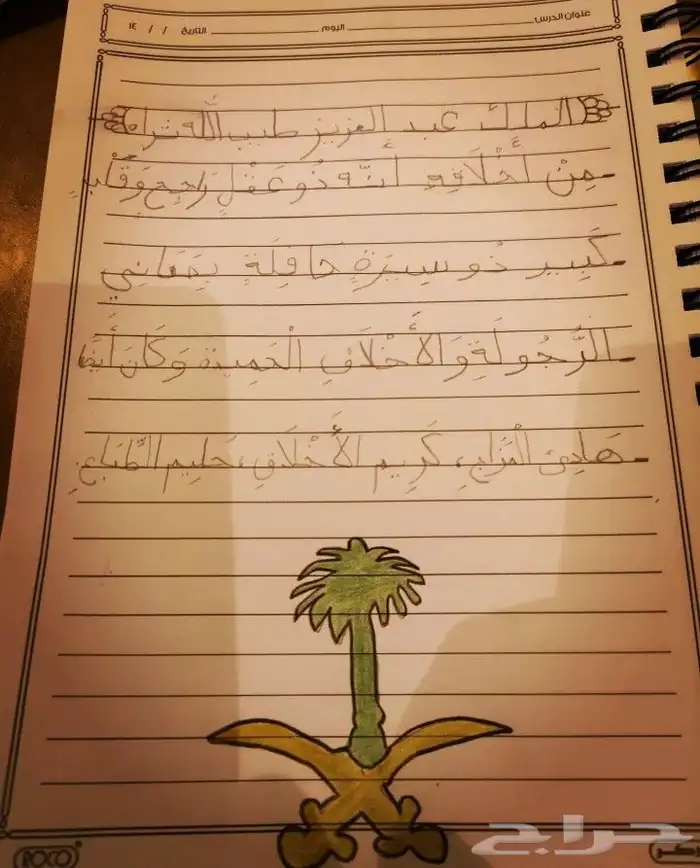 عنوان الدرس اليوم التاريخ / / ١٤
الملك عبد العزيز طيب الله ثراه
مِنْ أَخْلَاقِهِ أَنَّه ذُو عَقْلٍ رَاجِحٍ وَقَلْبٍ
كَبِير ذُو سِيرَةٍ حَافِلَةٍ بِمَعَانِي
الرُّجُولَةِ وَالأَخْلَاقِ الْحَمِيدة وَكَانَ أَيضا
هَادِئ الْمَزَاجِ، كَرِيم الأَخْلَاقِ، حَلِيم الطِّبَاعِ.
ROCO
حراج